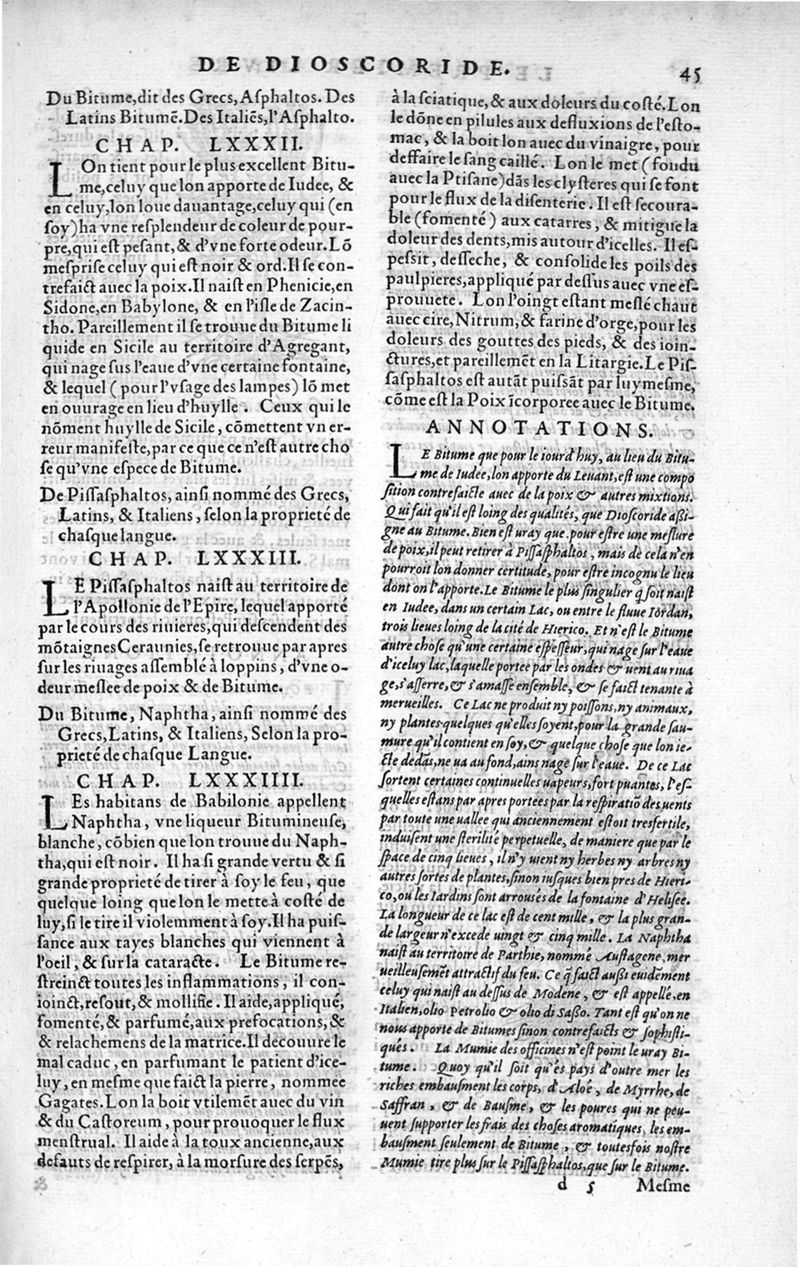 DE DIOSCORIDE.
45
Du Bitume,dit des Grecs, Asphaltos. Des
Latins Bitumẽ.Des Italiẽs,l'Asphalto.
CHAP. LXXXII.
LOn tient pour le plus excellent Bitu-
me,celuy que lon apporte de Iudee, &
en celuy,lon loue dauantage,celuy qui (en
soy)ha vne resplendeur de coleur de pour-
pre,qui est pesant,& d'vne forte odeur.Lõ
mesprise celuy qui est noir & ord.Il se con-
trefaict auec la poix.Il naist en Phenicie,en
Sidone,en Babylone, & en l'isle de Zacin-
tho. Pareillement il se trouue du Bitume li
quide en Sicile au territoire d'Agregant,
qui nage sus l'eaue d'vne certaine fontaine,
& lequel (pour l'vsage des lampes) lõ met
en ouurage en lieu d'huylle . Ceux qui le
nõment huylle de Sicile, cõmettent vn er-
reur manifeste,par ce que ce n'est autre cho
se qu'vne espece de Bitume.
De Pissasphaltos, ainsi nommé des Grecs,
Latins, & Italiens, selon la proprieté de
chasque langue.
CHAP. LXXXIII.
LE Pissasphaltos naist au territoire de
l'Apollonie de l'Epire, lequel apporté
par le cours des riuieres,qui descendent des
mõtaignes Ceraunies,se retrouue par apres
sur les riuages assemblé à loppins, d'vne o-
deur meslee de poix & de Bitume.
Du Bitume, Naphtha, ainsi nommé des
Grecs,Latins, & Italiens, Selon la pro-
prieté de chasque Langue.
CHAP. LXXXIIII.
LEs habitans de Babilonie appellent
Naphtha, vne liqueur Bitumineuse,
blanche, cõbien que lon trouue du Naph-
tha,qui est noir. Il ha si grande vertu & si
grande proprieté de tirer à soy le feu, que
quelque loing que lon le mette à costé de
luy,si le tire il violemment à soy.Il ha puis-
sance aux tayes blanches qui viennent à
l'oeil , & sur la cataracte. Le Bitume re-
streinct toutes les inflammations, il con-
ioinct,resout,& mollifie. Il aide,appliqué,
fomenté,& parfumé,aux prefocations,&
& relachemens de la matrice.Il decouure le
mal caduc , en parfumant le patient d'ice-
luy , en mesme que faict la pierre, nommee
Gagates. Lon la boit vtilemẽt auec du vin
& du Castoreum , pour prouoquer le flux
menstrual. Il aide à la toux ancienne,aux
defauts de respirer, à la morsure des serpẽs,
à la sciatique, & aux doleurs du costé. Lon
le dõne en pilules aux defluxions de l'esto-
mac, & la boit lon auec du vinaigre, pour
deffaire le sang caillé. Lon le met (fondu
auec la Ptisane)dãs les clysteres qui se font
pour le flux de la disenterie. Il est secoura-
ble (fomenté) aux catarres, & mitigue la
doleur des dents,mis autour d'icelles. Il es-
pessit, desseche, & consolide les poils des
paulpieres,appliqué par dessus auec vne es-
prouuete. Lon l'oingt estant meslé chaut
auec cire, Nitrum, & farine d'orge,pour les
doleurs des gouttes des pieds, & des ioin-
ctures,et pareillemẽt en la Litargie.Le Pis-
sasphaltos est autãt puissãt par luymesme,
cõme est la Poix ĩcorporee auec le Bitume.
ANNOTATIONS.
LE Bitume que pour le iourd'huy, au lieu du Bitu-
me de Iudee, lon apporte du Leuant,est une compo
sition contrefaicte auec de la poix & autres mixtions.
Qui fait qu'il est loing des qualités, que Dioscoride aßi-
gne au Bitume. Bien est uray que,pour estre une meslure
de poix,il peut retirer à Pissasphaltos , mais de cela n'en
pourroit lon donner certitude, pour estre incognu le lieu
dont on l'apporte.Le Bitume le plus singulier q̃ soit naist
en Iudee, dans un certain Lac, ou entre le fluue Iordan,
trois lieues loing de la cité de Hierico. Et n'est le Bitume
autre chose qu'une certaine espesseur,qui nage sur l'eaue
d'iceluy lac,laquelle portee par les ondes & uent au riua
ge,s'asserre,& s'amasse ensemble, & se faict tenante à
merueilles. Ce Lac ne produit ny poissons, ny animaux,
ny plantes quelques qu'elles soyent,pour la grande sau-
mure qu'il contient en soy,& quelque chose que lon ie-
cte dedãs,ne ua au fond,ains nage sur l'eaue. De ce Lac
sortent certaines continuelles uapeurs,fort puantes, l'es-
quelles estans par apres portees par la respiratiõ des uents
par toute une uallee qui anciennement estoit tresfertile,
induisent une sterilité perpetuelle, de maniere que par le
space de cinq lieues , il n'y uient ny herbes ny arbres ny
autres sortes de plantes,sinon iusques bien pres de Hieri-
co,ou les Iardins sont arrousés de la fontaine d'Helisee.
La longueur de ce lac est de cent mille, & la plus gran-
de largeur n'excede uingt & cinq mille. La Naphtha
naist au territoire de Parthie, nommé Austagene,mer
ueilleusemẽt attractif du feu. Ce q̃ faict außi euidẽment
celuy qui naist au dessus de Modene , & est appellé,en
Italien,olio Petrolio & olio di Saßo. Tant est qu'on ne
nous apporte de Bitumes sinon contrefaicts & sophisti-
qués. La Mumie des officines n'est point le uray Bi-
tume. Quoy qu'il soit qu'és pays d'outre mer les
riches embausment les corps, d'Aloé , de Myrrhe, de
Saffran , & de Bausme, & les poures qui ne peu-
uent supporter les frais des choses aromatiques, les em-
bausment seulement de Bitume , & toutesfois nostre
Mumie tire plus sur le Pissasphaltos,que sur le Bitume.
d 5 Mesme